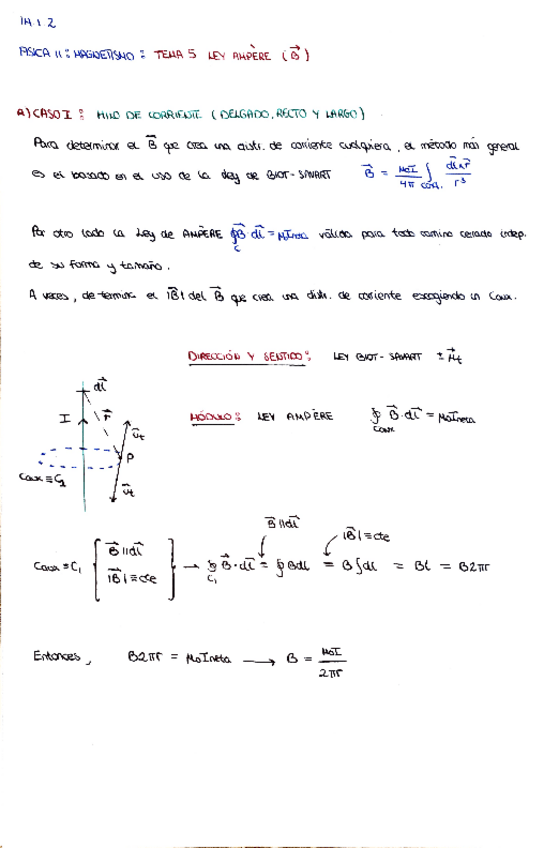 IH 1 2
FISICA II : MAGNETISMO : TEMA 5 LEY AMPÈRE (B⃗)
A) CASO I : HILO DE CORRIENTE (DELGADO, RECTO Y LARGO)
Para determinar el B⃗ que crea una distr. de corriente cualquiera, el método más general
es el basado en el uso de la ley de BIOT-SAVART B⃗ = μoI/4π ∫corr. dl⃗ x r⃗ / r³
Por otro lado la ley de AMPÈRE ∮c B⃗·dl⃗ = μIneta válida para todo camino cerrado indep.
de su forma y tamaño.
A veces, determina el |B⃗| del B⃗ que crea una distr. de corriente escogiendo un Caux.
DIRECCIÓN Y SENTIDO : LEY BIOT-SAVART ± μ⃗t
MÓDULO : LEY AMPÈRE ∮caux B⃗·dl⃗ = μoIneta
dl⃗
I r⃗
u⃗t
P
Caux ≡ C1
u⃗t
B⃗ ∥ dl⃗ |B⃗| ≡ cte
Caux ≡ C1 [ B⃗ ∥ dl⃗ |B⃗| ≡ cte ] → ∮C1 B⃗·dl⃗ = ∮ Bdl = B∫dl = Bl = B2πr
Entonces, B2πr = μoIneta → B = μoI/2πr